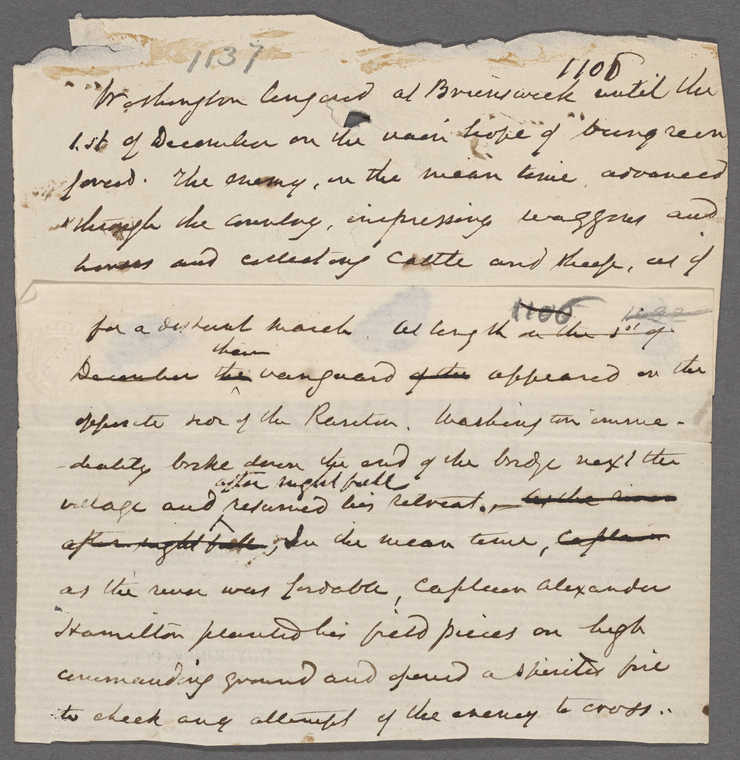 1137
1106
Washington lingered at Brunswick until the
1st of December in the vain hope of being reen
forced. The enemy, in the mean time, advanced
through the country, impressing waggons and
horses and collecting cattle and sheep, as if
for a distant march. At length on the 1st of
1106
their
December the vanguard of the appeared on the
opposite side of the Raritan. Washington imme-
-diately broke down the end of the bridge next the
after nightfall
village and resumed his retreat. – As the river
after nightfall, In the mean time, Captain
as the river was fordable, Captain Alexander
Hamilton planted his field pieces on high
commanding ground and opened a spirited fire
to check any attempt of the enemy to cross..